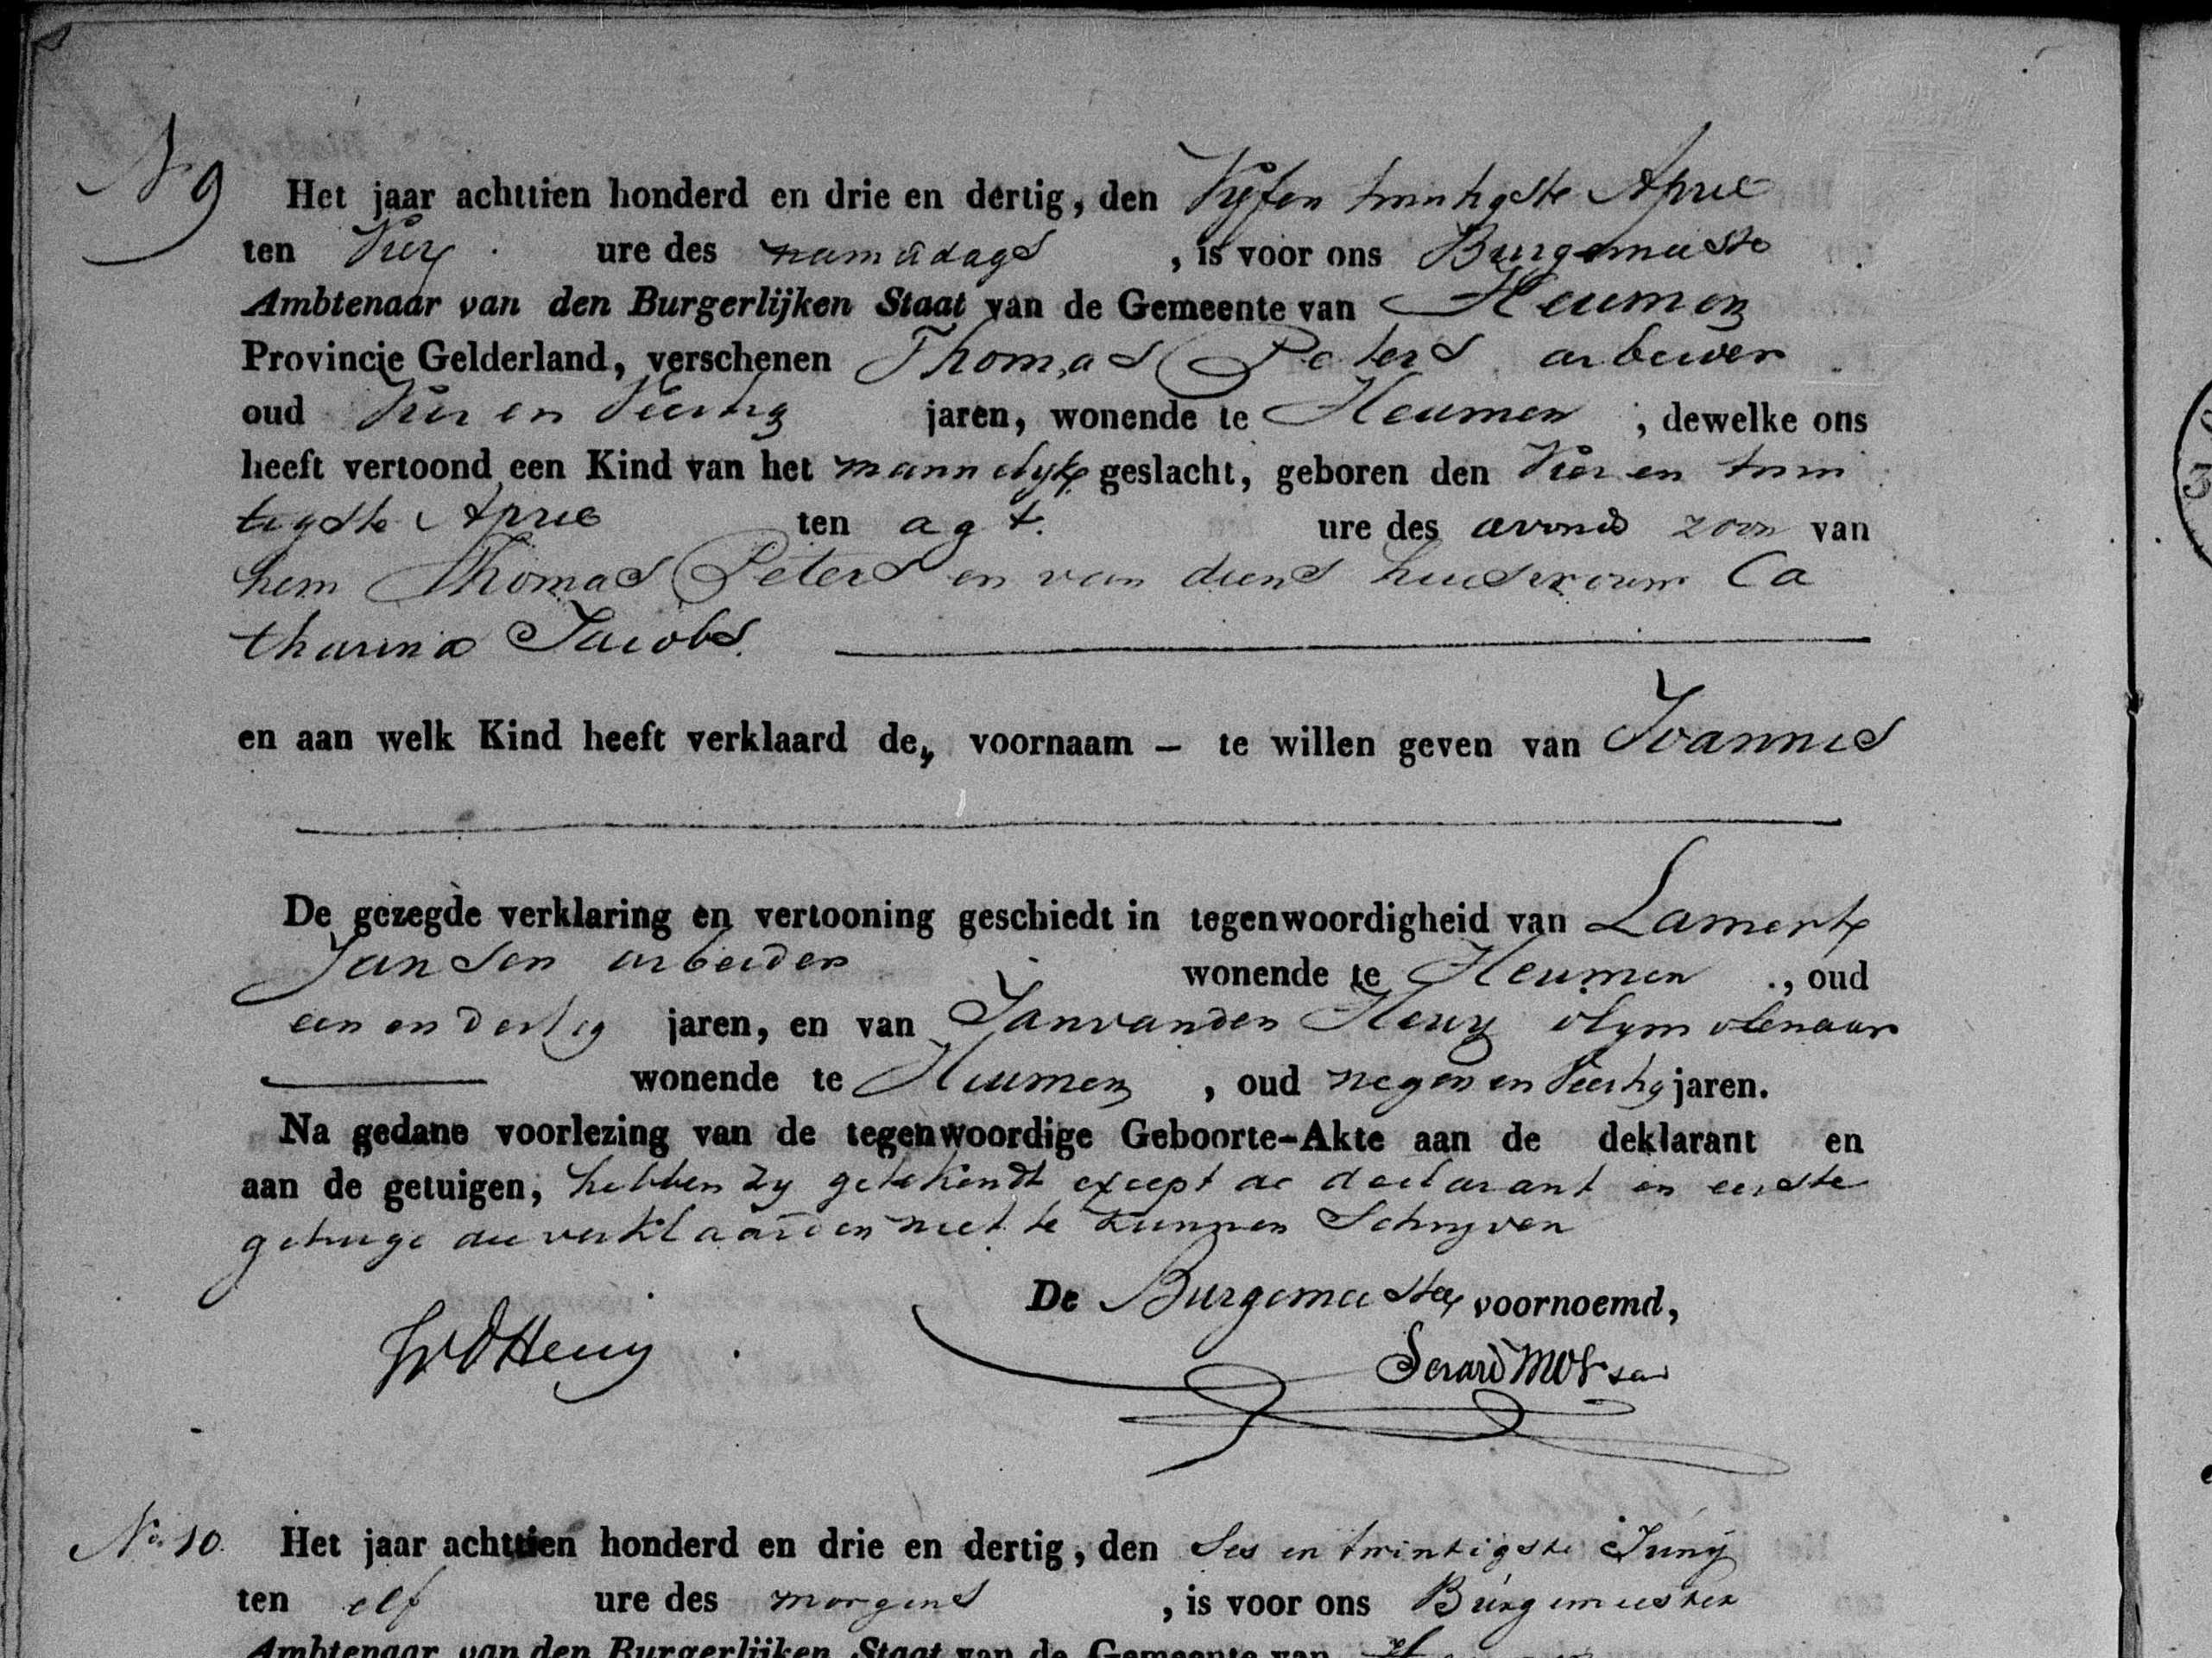 N 9 Het jaar achttien honderd en drie en dertig, den Vyfen twintigste April
ten Vier ure des namiddags , is voor ons Burgemeester
Ambtenaar van den Burgerlijken Staat van de Gemeente van Heumen
Provincie Gelderland, verschenen Thomas Peters arbeider
oud Vier en Veertig jaren, wonende te Heumen , dewelke ons
heeft vertoond een Kind van het mannelyk geslacht, geboren den Vier en twin
tigste April ten agt. ure des avonds zoon van
hem Thomas Peters en van diens huisvrouw Ca
tharina Jacobs.
en aan welk Kind heeft verklaard de, voornaam – te willen geven van Joannes
De gezegde verklaring en vertooning geschiedt in tegenwoordigheid van Lamert
Jansen arbeider wonende te Heumen ., oud
een en dertig jaren, en van Jan van den Heuy olymolenaar
wonende te Heumen , oud negen en Veertig jaren.
Na gedane voorlezing van de tegenwoordige Geboorte-Akte aan de deklarant en
aan de getuigen, hebben zy getekendt except de declarant en eerste
getuige die verklaarden niet te kunnen Schryven
De Burgemeester voornoemd,
JVDHeuy
Gerard
No. 10. Het jaar achttien honderd en drie en dertig, den Ses en twintigste Juny
ten elf ure des morgens , is voor ons Burgemeester
Ambtenaar van den Burgerlijken Staat van de Gemeente van